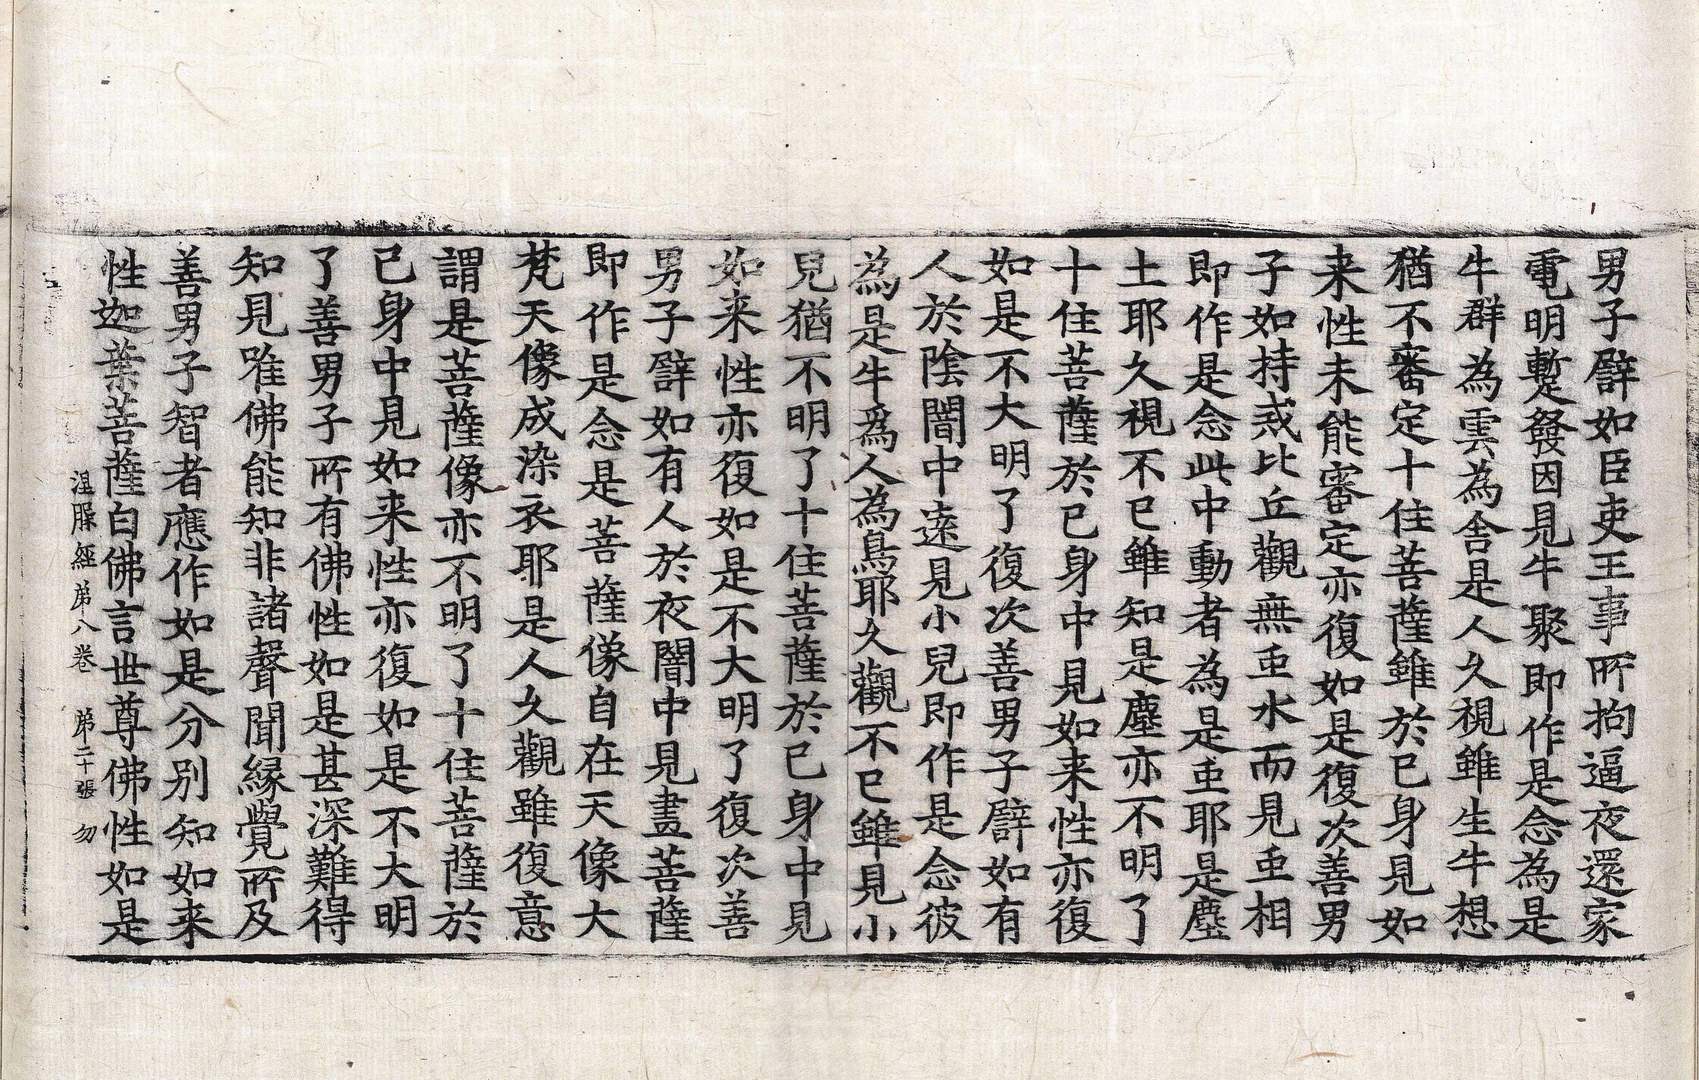 男子譬如臣吏王事所拘逼夜還家
電明蹔發因見牛聚即作是念為是
牛群為雲為舍是人久視雖生牛想
猶不審定十住菩薩雖於已身見如
来性未能審定亦復如是復次善男
子如持戒比丘觀無虫水而見虫相
即作是念此中動者為是虫耶是塵
土耶久視不已雖知是塵亦不明了
十住菩薩於已身中見如来性亦復
如是不大明了復次善男子譬如有
人於陰闇中遠見小兒即作是念彼
為是牛為人為鳥耶久觀不已雖見小
兒猶不明了十住菩薩於已身中見
如来性亦復如是不大明了復次善
男子譬如有人於夜闇中見畫菩薩
即作是念是菩薩像自在天像大
梵天像成染衣耶是人久觀雖復意
謂是菩薩像亦不明了十住菩薩於
已身中見如来性亦復如是不大明
了善男子所有佛性如是甚深難得
知見唯佛能知非諸聲聞緣覺所及
善男子智者應作如是分别知如来
性迦葉菩薩白佛言世尊佛性如是
涅脲經第八卷 第二十張 勿